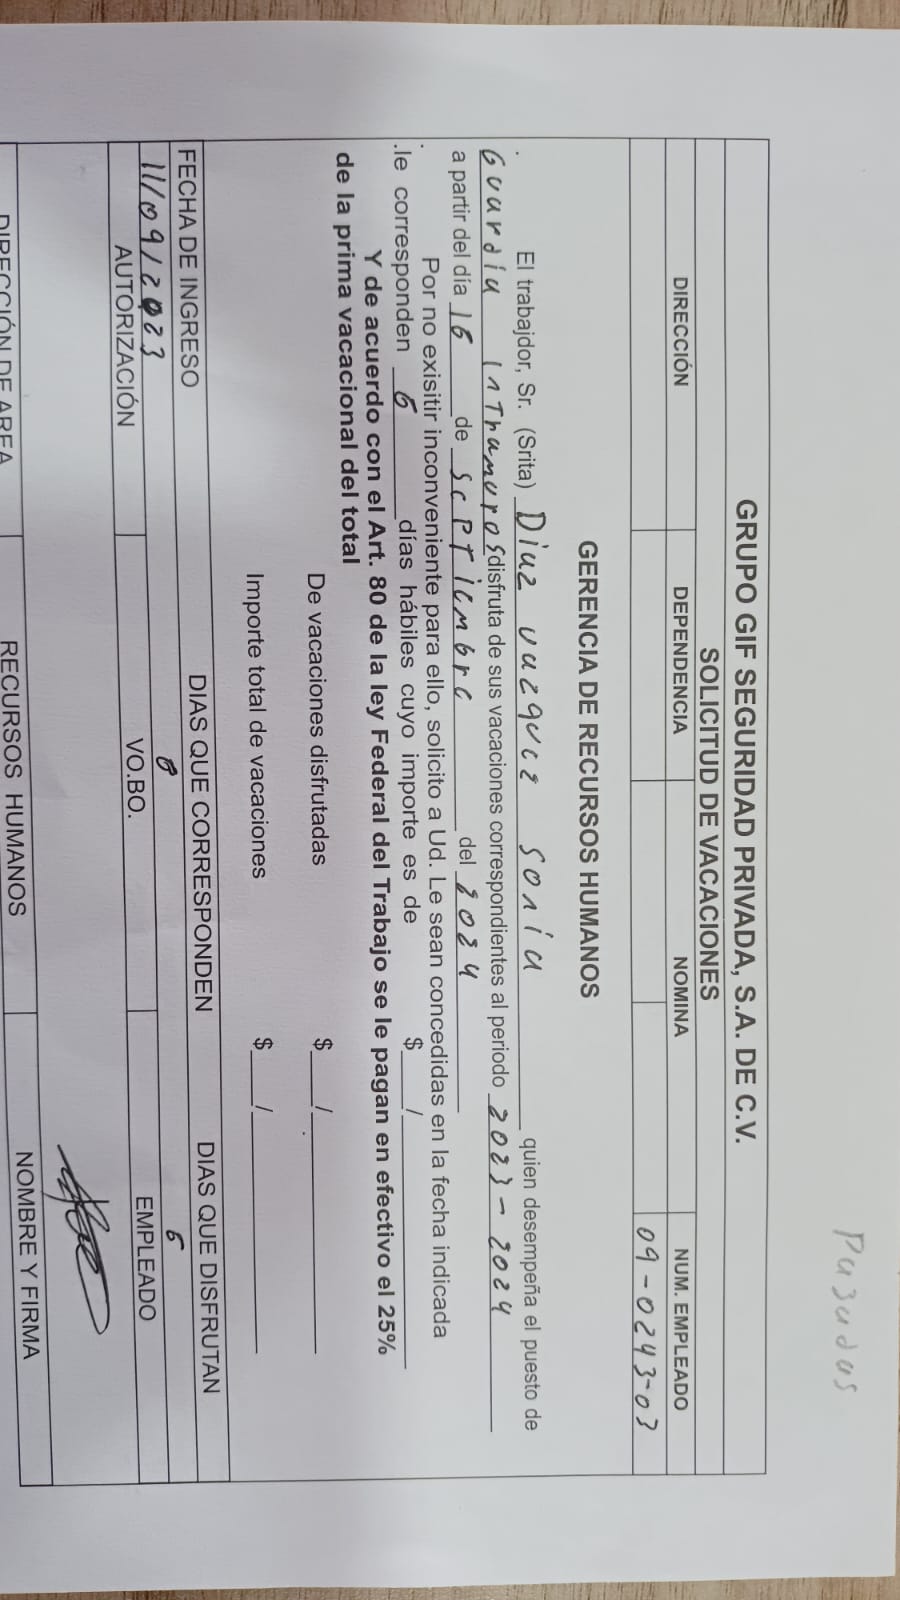 Pasadas
GRUPO GIF SEGURIDAD PRIVADA, S.A. DE C.V.
SOLICITUD DE VACACIONES
DIRECCIÓN DEPENDENCIA NOMINA NUM. EMPLEADO
09-0243-03
GERENCIA DE RECURSOS HUMANOS
El trabajdor, Sr. (Srita) Diaz vazquez sonia quien desempeña el puesto de
Guardia intramuros disfruta de sus vacaciones correspondientes al periodo 2023-2024
a partir del día 16 de septiembre del 2024
Por no exisitir inconveniente para ello, solicito a Ud. Le sean concedidas en la fecha indicada
.le corresponden 6 días hábiles cuyo importe es de $ /
Y de acuerdo con el Art. 80 de la ley Federal del Trabajo se le pagan en efectivo el 25%
de la prima vacacional del total
De vacaciones disfrutadas $ /
Importe total de vacaciones $ /
FECHA DE INGRESO DIAS QUE CORRESPONDEN DIAS QUE DISFRUTAN
11/09/2023 6
AUTORIZACIÓN VO.BO. EMPLEADO
DIRECCIÓN DE AREA RECURSOS HUMANOS NOMBRE Y FIRMA